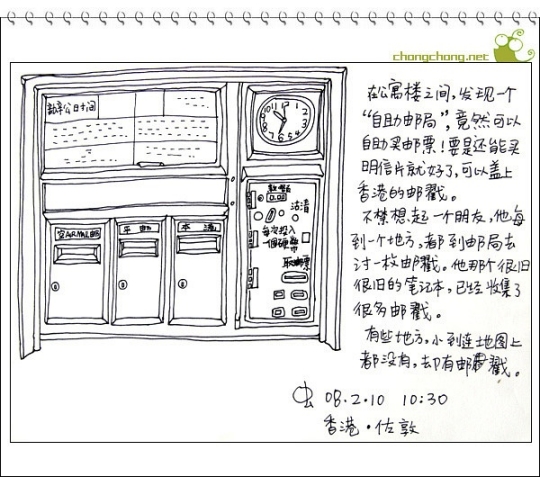 chongchong.net
在公寓楼之间,发现一个
“自助邮局”,竟然可以
自助买邮票!要是还能买
明信片就好了,可以盖上
香港的邮戳。
不禁想起一个朋友,他每
到一个地方,都到邮局去
讨一枚邮戳。他那个很旧
很旧的笔记本,已经收集了
很多邮戳。
有些地方,小到连地图上
都没有,却有邮戳。
虫 08.2.10 10:30
香港·佐敦
办公时间
空邮AIRMAIL
平邮
本港
沽清
每次投入
一個硬幣
取邮票